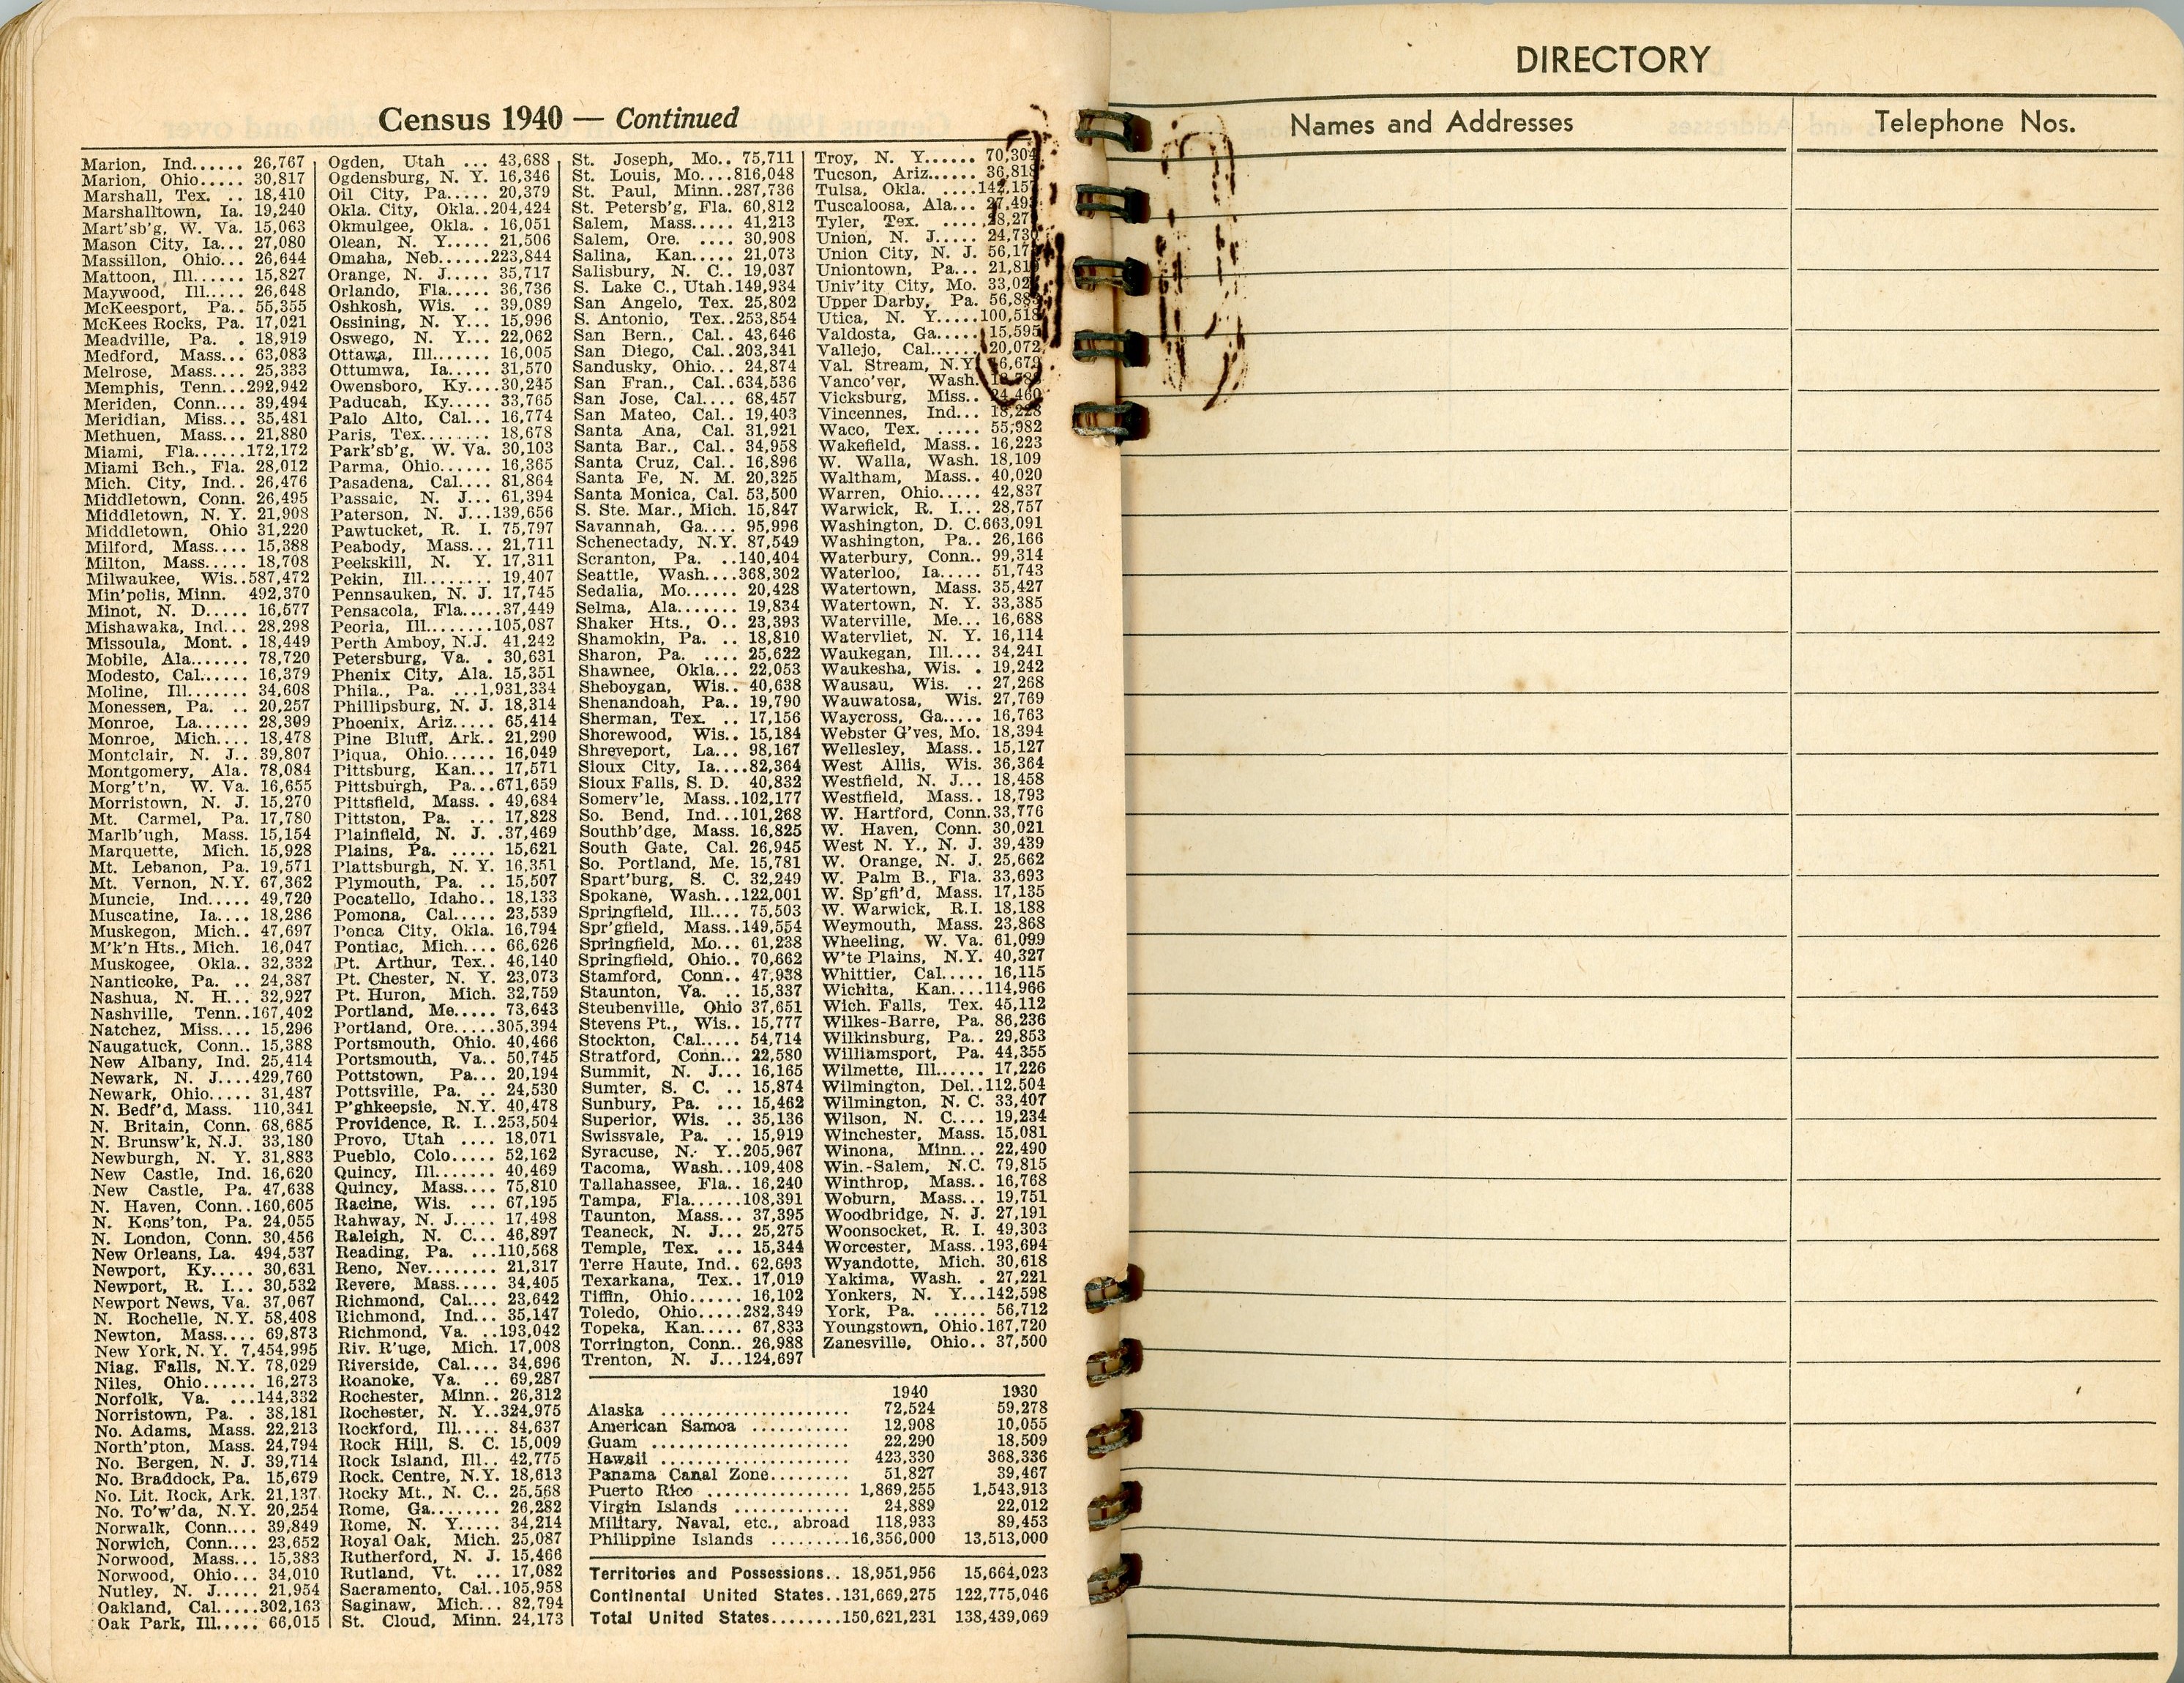 Census 1940 — Continued
Marion, Ind...... 26,767
Marion, Ohio..... 30,817
Marshall, Tex. .. 18,410
Marshalltown, Ia. 19,240
Mart'sb'g, W. Va. 15,063
Mason City, Ia... 27,080
Massillon, Ohio... 26,644
Mattoon, Ill...... 15,827
Maywood, Ill..... 26,648
McKeesport, Pa.. 55,355
McKees Rocks, Pa. 17,021
Meadville, Pa. . 18,919
Medford, Mass... 63,083
Melrose, Mass.... 25,333
Memphis, Tenn...292,942
Meriden, Conn.... 39,494
Meridian, Miss... 35,481
Methuen, Mass... 21,880
Miami, Fla......172,172
Miami Bch., Fla. 28,012
Mich. City, Ind.. 26,476
Middletown, Conn. 26,495
Middletown, N. Y. 21,908
Middletown, Ohio 31,220
Milford, Mass.... 15,388
Milton, Mass..... 18,708
Milwaukee, Wis..587,472
Min'polis, Minn. 492,370
Minot, N. D..... 16,577
Mishawaka, Ind... 28,298
Missoula, Mont. . 18,449
Mobile, Ala....... 78,720
Modesto, Cal...... 16,379
Moline, Ill....... 34,608
Monessen, Pa. .. 20,257
Monroe, La...... 28,309
Monroe, Mich.... 18,478
Montclair, N. J.. 39,807
Montgomery, Ala. 78,084
Morg't'n, W. Va. 16,655
Morristown, N. J. 15,270
Mt. Carmel, Pa. 17,780
Marlb'ugh, Mass. 15,154
Marquette, Mich. 15,928
Mt. Lebanon, Pa. 19,571
Mt. Vernon, N.Y. 67,362
Muncie, Ind..... 49,720
Muscatine, Ia.... 18,286
Muskegon, Mich.. 47,697
M'k'n Hts., Mich. 16,047
Muskogee, Okla.. 32,332
Nanticoke, Pa. .. 24,387
Nashua, N. H... 32,927
Nashville, Tenn..167,402
Natchez, Miss.... 15,296
Naugatuck, Conn.. 15,388
New Albany, Ind. 25,414
Newark, N. J....429,760
Newark, Ohio..... 31,487
N. Bedf'd, Mass. 110,341
N. Britain, Conn. 68,685
N. Brunsw'k, N.J. 33,180
Newburgh, N. Y. 31,883
New Castle, Ind. 16,620
New Castle, Pa. 47,638
N. Haven, Conn..160,605
N. Kens'ton, Pa. 24,055
N. London, Conn. 30,456
New Orleans, La. 494,537
Newport, Ky..... 30,631
Newport, R. I... 30,532
Newport News, Va. 37,067
N. Rochelle, N.Y. 58,408
Newton, Mass.... 69,873
New York, N. Y. 7,454,995
Niag. Falls, N.Y. 78,029
Niles, Ohio...... 16,273
Norfolk, Va. ...144,332
Norristown, Pa. . 38,181
No. Adams, Mass. 22,213
North'pton, Mass. 24,794
No. Bergen, N. J. 39,714
No. Braddock, Pa. 15,679
No. Lit. Rock, Ark. 21,137
No. To'w'da, N.Y. 20,254
Norwalk, Conn.... 39,849
Norwich, Conn.... 23,652
Norwood, Mass... 15,383
Norwood, Ohio... 34,010
Nutley, N. J..... 21,954
Oakland, Cal.....302,163
Oak Park, Ill..... 66,015
Ogden, Utah ... 43,688
Ogdensburg, N. Y. 16,346
Oil City, Pa..... 20,379
Okla. City, Okla..204,424
Okmulgee, Okla. . 16,051
Olean, N. Y..... 21,506
Omaha, Neb......223,844
Orange, N. J..... 35,717
Orlando, Fla..... 36,736
Oshkosh, Wis. .. 39,089
Ossining, N. Y... 15,996
Oswego, N. Y... 22,062
Ottawa, Ill....... 16,005
Ottumwa, Ia..... 31,570
Owensboro, Ky....30,245
Paducah, Ky..... 33,765
Palo Alto, Cal... 16,774
Paris, Tex........ 18,678
Park'sb'g, W. Va. 30,103
Parma, Ohio...... 16,365
Pasadena, Cal.... 81,864
Passaic, N. J... 61,394
Paterson, N. J...139,656
Pawtucket, R. I. 75,797
Peabody, Mass... 21,711
Peekskill, N. Y. 17,311
Pekin, Ill........ 19,407
Pennsauken, N. J. 17,745
Pensacola, Fla.....37,449
Peoria, Ill........105,087
Perth Amboy, N.J. 41,242
Petersburg, Va. . 30,631
Phenix City, Ala. 15,351
Phila., Pa. ...1,931,334
Phillipsburg, N. J. 18,314
Phoenix, Ariz..... 65,414
Pine Bluff, Ark.. 21,290
Piqua, Ohio...... 16,049
Pittsburg, Kan... 17,571
Pittsburgh, Pa...671,659
Pittsfield, Mass. . 49,684
Pittston, Pa. ... 17,828
Plainfield, N. J. .37,469
Plains, Pa. ..... 15,621
Plattsburgh, N. Y. 16,351
Plymouth, Pa. .. 15,507
Pocatello, Idaho.. 18,133
Pomona, Cal..... 23,539
Ponca City, Okla. 16,794
Pontiac, Mich.... 66,626
Pt. Arthur, Tex.. 46,140
Pt. Chester, N. Y. 23,073
Pt. Huron, Mich. 32,759
Portland, Me..... 73,643
Portland, Ore.....305,394
Portsmouth, Ohio. 40,466
Portsmouth, Va.. 50,745
Pottstown, Pa... 20,194
Pottsville, Pa. .. 24,530
P'ghkeepsie, N.Y. 40,478
Providence, R. I..253,504
Provo, Utah .... 18,071
Pueblo, Colo..... 52,162
Quincy, Ill....... 40,469
Quincy, Mass.... 75,810
Racine, Wis. ... 67,195
Rahway, N. J..... 17,498
Raleigh, N. C... 46,897
Reading, Pa. ...110,568
Reno, Nev........ 21,317
Revere, Mass..... 34,405
Richmond, Cal.... 23,642
Richmond, Ind... 35,147
Richmond, Va. ..193,042
Riv. R'uge, Mich. 17,008
Riverside, Cal.... 34,696
Roanoke, Va. .. 69,287
Rochester, Minn.. 26,312
Rochester, N. Y..324,975
Rockford, Ill..... 84,637
Rock Hill, S. C. 15,009
Rock Island, Ill.. 42,775
Rock. Centre, N.Y. 18,613
Rocky Mt., N. C.. 25,568
Rome, Ga........ 26,282
Rome, N. Y..... 34,214
Royal Oak, Mich. 25,087
Rutherford, N. J. 15,466
Rutland, Vt. ... 17,082
Sacramento, Cal..105,958
Saginaw, Mich... 82,794
St. Cloud, Minn. 24,173
St. Joseph, Mo.. 75,711
St. Louis, Mo....816,048
St. Paul, Minn..287,736
St. Petersb'g, Fla. 60,812
Salem, Mass..... 41,213
Salem, Ore. .... 30,908
Salina, Kan..... 21,073
Salisbury, N. C.. 19,037
S. Lake C., Utah.149,934
San Angelo, Tex. 25,802
S. Antonio, Tex..253,854
San Bern., Cal.. 43,646
San Diego, Cal..203,341
Sandusky, Ohio... 24,874
San Fran., Cal..634,536
San Jose, Cal.... 68,457
San Mateo, Cal.. 19,403
Santa Ana, Cal. 31,921
Santa Bar., Cal.. 34,958
Santa Cruz, Cal.. 16,896
Santa Fe, N. M. 20,325
Santa Monica, Cal. 53,500
S. Ste. Mar., Mich. 15,847
Savannah, Ga.... 95,996
Schenectady, N.Y. 87,549
Scranton, Pa. ..140,404
Seattle, Wash....368,302
Sedalia, Mo...... 20,428
Selma, Ala....... 19,834
Shaker Hts., O.. 23,393
Shamokin, Pa. .. 18,810
Sharon, Pa. .... 25,622
Shawnee, Okla... 22,053
Sheboygan, Wis.. 40,638
Shenandoah, Pa.. 19,790
Sherman, Tex. .. 17,156
Shorewood, Wis.. 15,184
Shreveport, La... 98,167
Sioux City, Ia....82,364
Sioux Falls, S. D. 40,832
Somerv'le, Mass..102,177
So. Bend, Ind...101,268
Southb'dge, Mass. 16,825
South Gate, Cal. 26,945
So. Portland, Me. 15,781
Spart'burg, S. C. 32,249
Spokane, Wash...122,001
Springfield, Ill.... 75,503
Spr'gfield, Mass..149,554
Springfield, Mo... 61,238
Springfield, Ohio.. 70,662
Stamford, Conn.. 47,938
Staunton, Va. .. 15,337
Steubenville, Ohio 37,651
Stevens Pt., Wis.. 15,777
Stockton, Cal..... 54,714
Stratford, Conn... 22,580
Summit, N. J... 16,165
Sumter, S. C. .. 15,874
Sunbury, Pa. ... 15,462
Superior, Wis. .. 35,136
Swissvale, Pa. .. 15,919
Syracuse, N. Y..205,967
Tacoma, Wash...109,408
Tallahassee, Fla.. 16,240
Tampa, Fla......108,391
Taunton, Mass... 37,395
Teaneck, N. J... 25,275
Temple, Tex. ... 15,344
Terre Haute, Ind.. 62,693
Texarkana, Tex.. 17,019
Tiffin, Ohio...... 16,102
Toledo, Ohio.....282,349
Topeka, Kan..... 67,833
Torrington, Conn.. 26,988
Trenton, N. J...124,697
Troy, N. Y...... 70,304
Tucson, Ariz...... 36,818
Tulsa, Okla. ....142,157
Tuscaloosa, Ala... 27,493
Tyler, Tex. ....
Union, N. J..... 24,730
Union City, N. J.
Uniontown, Pa...
Univ'ity City, Mo.
Upper Darby, Pa.
Utica, N. Y.....100,518
Valdosta, Ga..... 15,595
Vallejo, Cal..... 20,072
Val. Stream, N.Y.
Vanco'ver, Wash.
Vicksburg, Miss.. 24,460
Vincennes, Ind... 18,228
Waco, Tex. ..... 55,982
Wakefield, Mass.. 16,223
W. Walla, Wash. 18,109
Waltham, Mass.. 40,020
Warren, Ohio..... 42,837
Warwick, R. I... 28,757
Washington, D. C.663,091
Washington, Pa.. 26,166
Waterbury, Conn.. 99,314
Waterloo, Ia..... 51,743
Watertown, Mass. 35,427
Watertown, N. Y. 33,385
Waterville, Me... 16,688
Watervliet, N. Y. 16,114
Waukegan, Ill.... 34,241
Waukesha, Wis. . 19,242
Wausau, Wis. .. 27,268
Wauwatosa, Wis. 27,769
Waycross, Ga..... 16,763
Webster G'ves, Mo. 18,394
Wellesley, Mass.. 15,127
West Allis, Wis. 36,364
Westfield, N. J... 18,458
Westfield, Mass.. 18,793
W. Hartford, Conn.33,776
W. Haven, Conn. 30,021
West N. Y., N. J. 39,439
W. Orange, N. J. 25,662
W. Palm B., Fla. 33,693
W. Sp'gfi'd, Mass. 17,135
W. Warwick, R.I. 18,188
Weymouth, Mass. 23,868
Wheeling, W. Va. 61,099
W'te Plains, N.Y. 40,327
Whittier, Cal..... 16,115
Wichita, Kan....114,966
Wich. Falls, Tex. 45,112
Wilkes-Barre, Pa. 86,236
Wilkinsburg, Pa.. 29,853
Williamsport, Pa. 44,355
Wilmette, Ill...... 17,226
Wilmington, Del..112,504
Wilmington, N. C. 33,407
Wilson, N. C.... 19,234
Winchester, Mass. 15,081
Winona, Minn... 22,490
Win.-Salem, N.C. 79,815
Winthrop, Mass.. 16,768
Woburn, Mass... 19,751
Woodbridge, N. J. 27,191
Woonsocket, R. I. 49,303
Worcester, Mass..193,694
Wyandotte, Mich. 30,618
Yakima, Wash. . 27,221
Yonkers, N. Y...142,598
York, Pa. ...... 56,712
Youngstown, Ohio.167,720
Zanesville, Ohio.. 37,500
1940 1930
Alaska ..................... 72,524 59,278
American Samoa ........... 12,908 10,055
Guam ...................... 22,290 18,509
Hawaii ..................... 423,330 368,336
Panama Canal Zone......... 51,827 39,467
Puerto Rico ............... 1,869,255 1,543,913
Virgin Islands ............ 24,889 22,012
Military, Naval, etc., abroad 118,933 89,453
Philippine Islands .........16,356,000 13,513,000
Territories and Possessions.. 18,951,956 15,664,023
Continental United States..131,669,275 122,775,046
Total United States........150,621,231 138,439,069
DIRECTORY
Names and Addresses Telephone Nos.